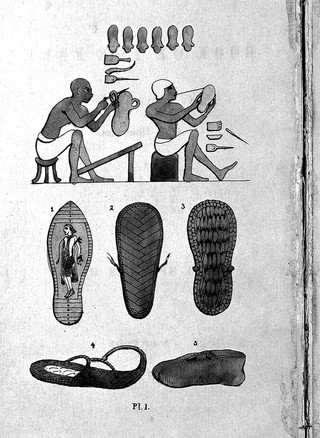 1 2 3
4 5
Pl. 1.